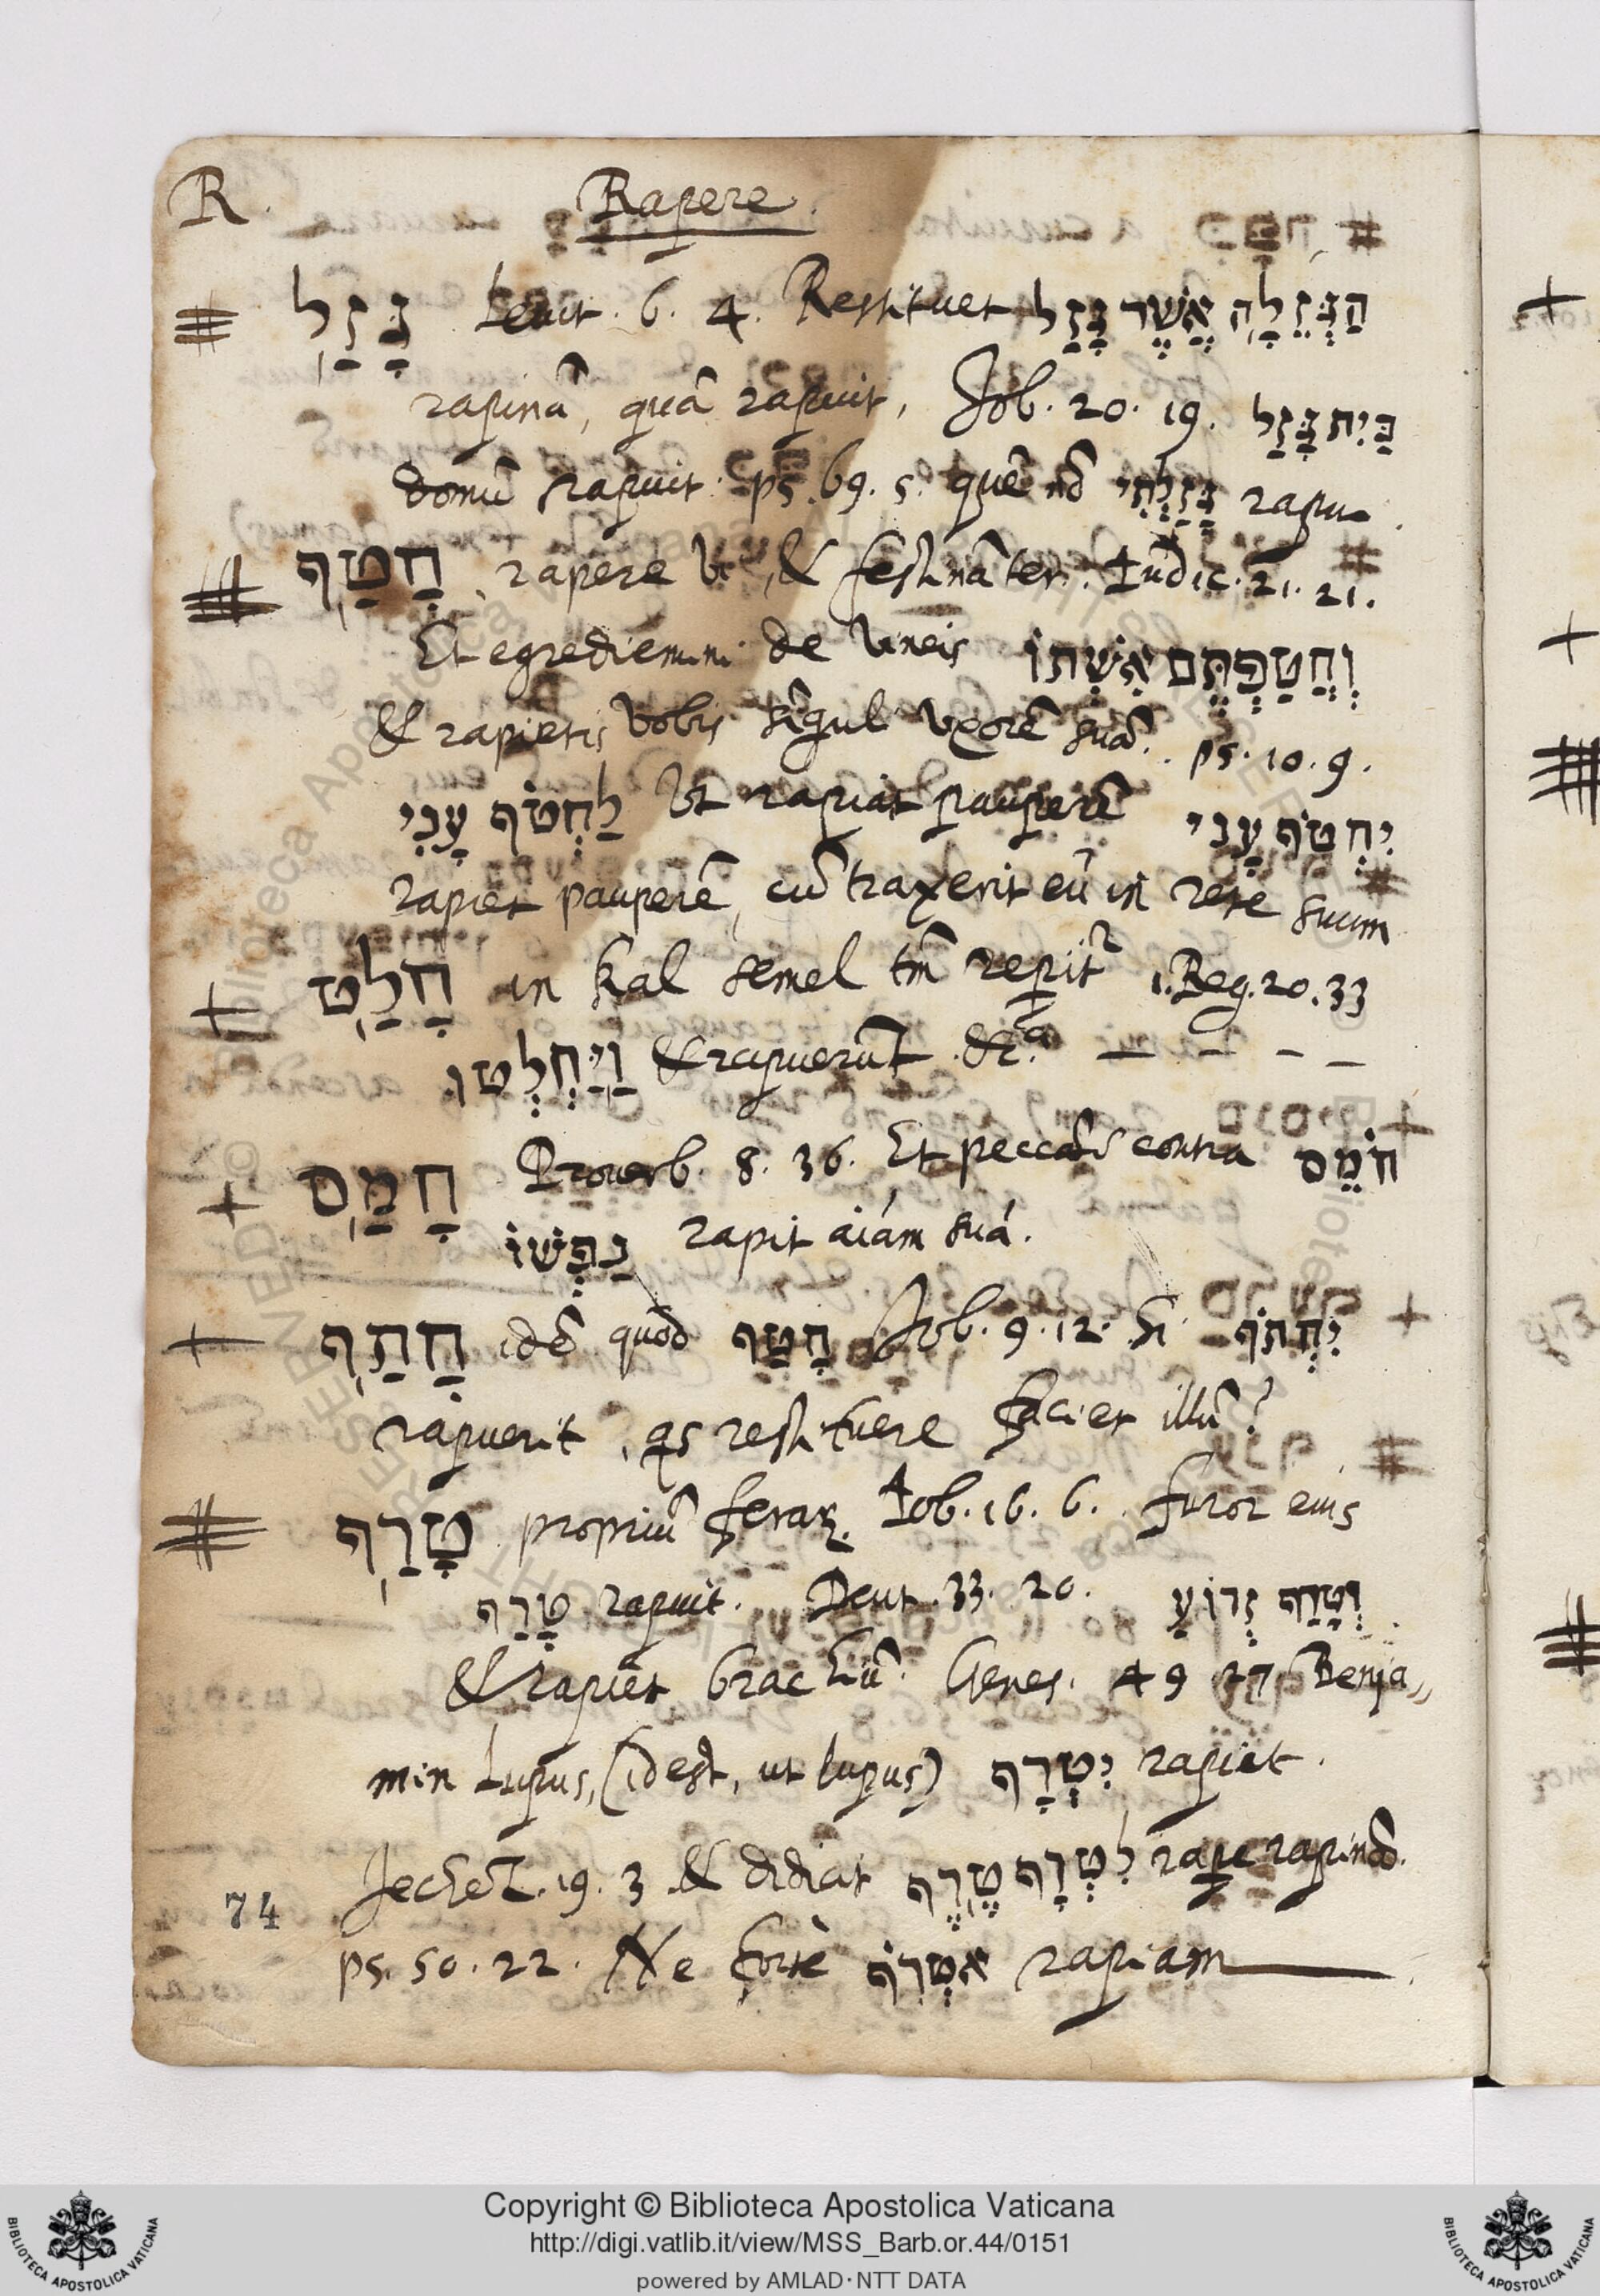 R. Rapere.
גָּזַל Levit. 6. 4. Restituet הַגְּזֵלָה אֲשֶׁר גָּזַל
rapinā, quā rapuit, Job. 20. 19. בַּיִת גָּזַל
domū rapuit. ps. 69. 5. quē nō גָּזַלְתִּי rapui.
חָטַף rapere vt, & festinātèr. Iudic. 21. 21.
Et egrediemini de vineis וְחֲטַפְתֶּם אִשְׁתּוֹ
& rapietis vobis sīgul vxorē suā. ps. 10. 9.
לַחְטוֹף עָנִי Vt rapiat pauperē יַחְטֹף עָנִי
rapiet pauperē, cū traxerit eū in rete suum
חָלַט in kal semel tm̄ repit 1. Reg. 20. 33
וַיַּחְלְטוּ & rapuerūt &c. – – – –
חָמַס Prouerb. 8. 36. Et peccās contra חֹמֵס
נַפְשׁוֹ rapit aiám suá.
חָתַף idē quod חָטַף Job. 9. 12. Si יַחְתֹּף
rapuerit, qs restituere faciet illū?
טָרַף propriū feraꝝ. Iob. 16. 6. furor eius
טָרַף rapuit. Deut. 33. 20. וְטָרַף זְרוֹעַ
& rapiet brachiū. Genes. 49 27 Benja„
min Lupus, (id est, ut lupus) יִטְרָף rapiet.
Jechez. 19. 3 & didicit לִטְרָף טֶרֶף rape rapinā.
74
ps. 50. 22. Ne forte אֶטְרֹף rapiam
Copyright © Biblioteca Apostolica Vaticana
http://digi.vatlib.it/view/MSS_Barb.or.44/0151
powered by AMLAD·NTT DATA
BIBLIOTECA APOSTOLICA VATICANA
BIBLIOTECA APOSTOLICA VATICANA